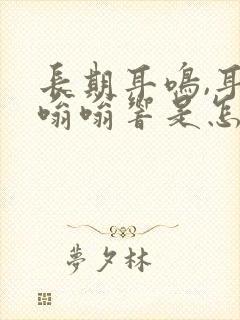 長期耳鳴,耳
嗡嗡響是怎
夢夕林